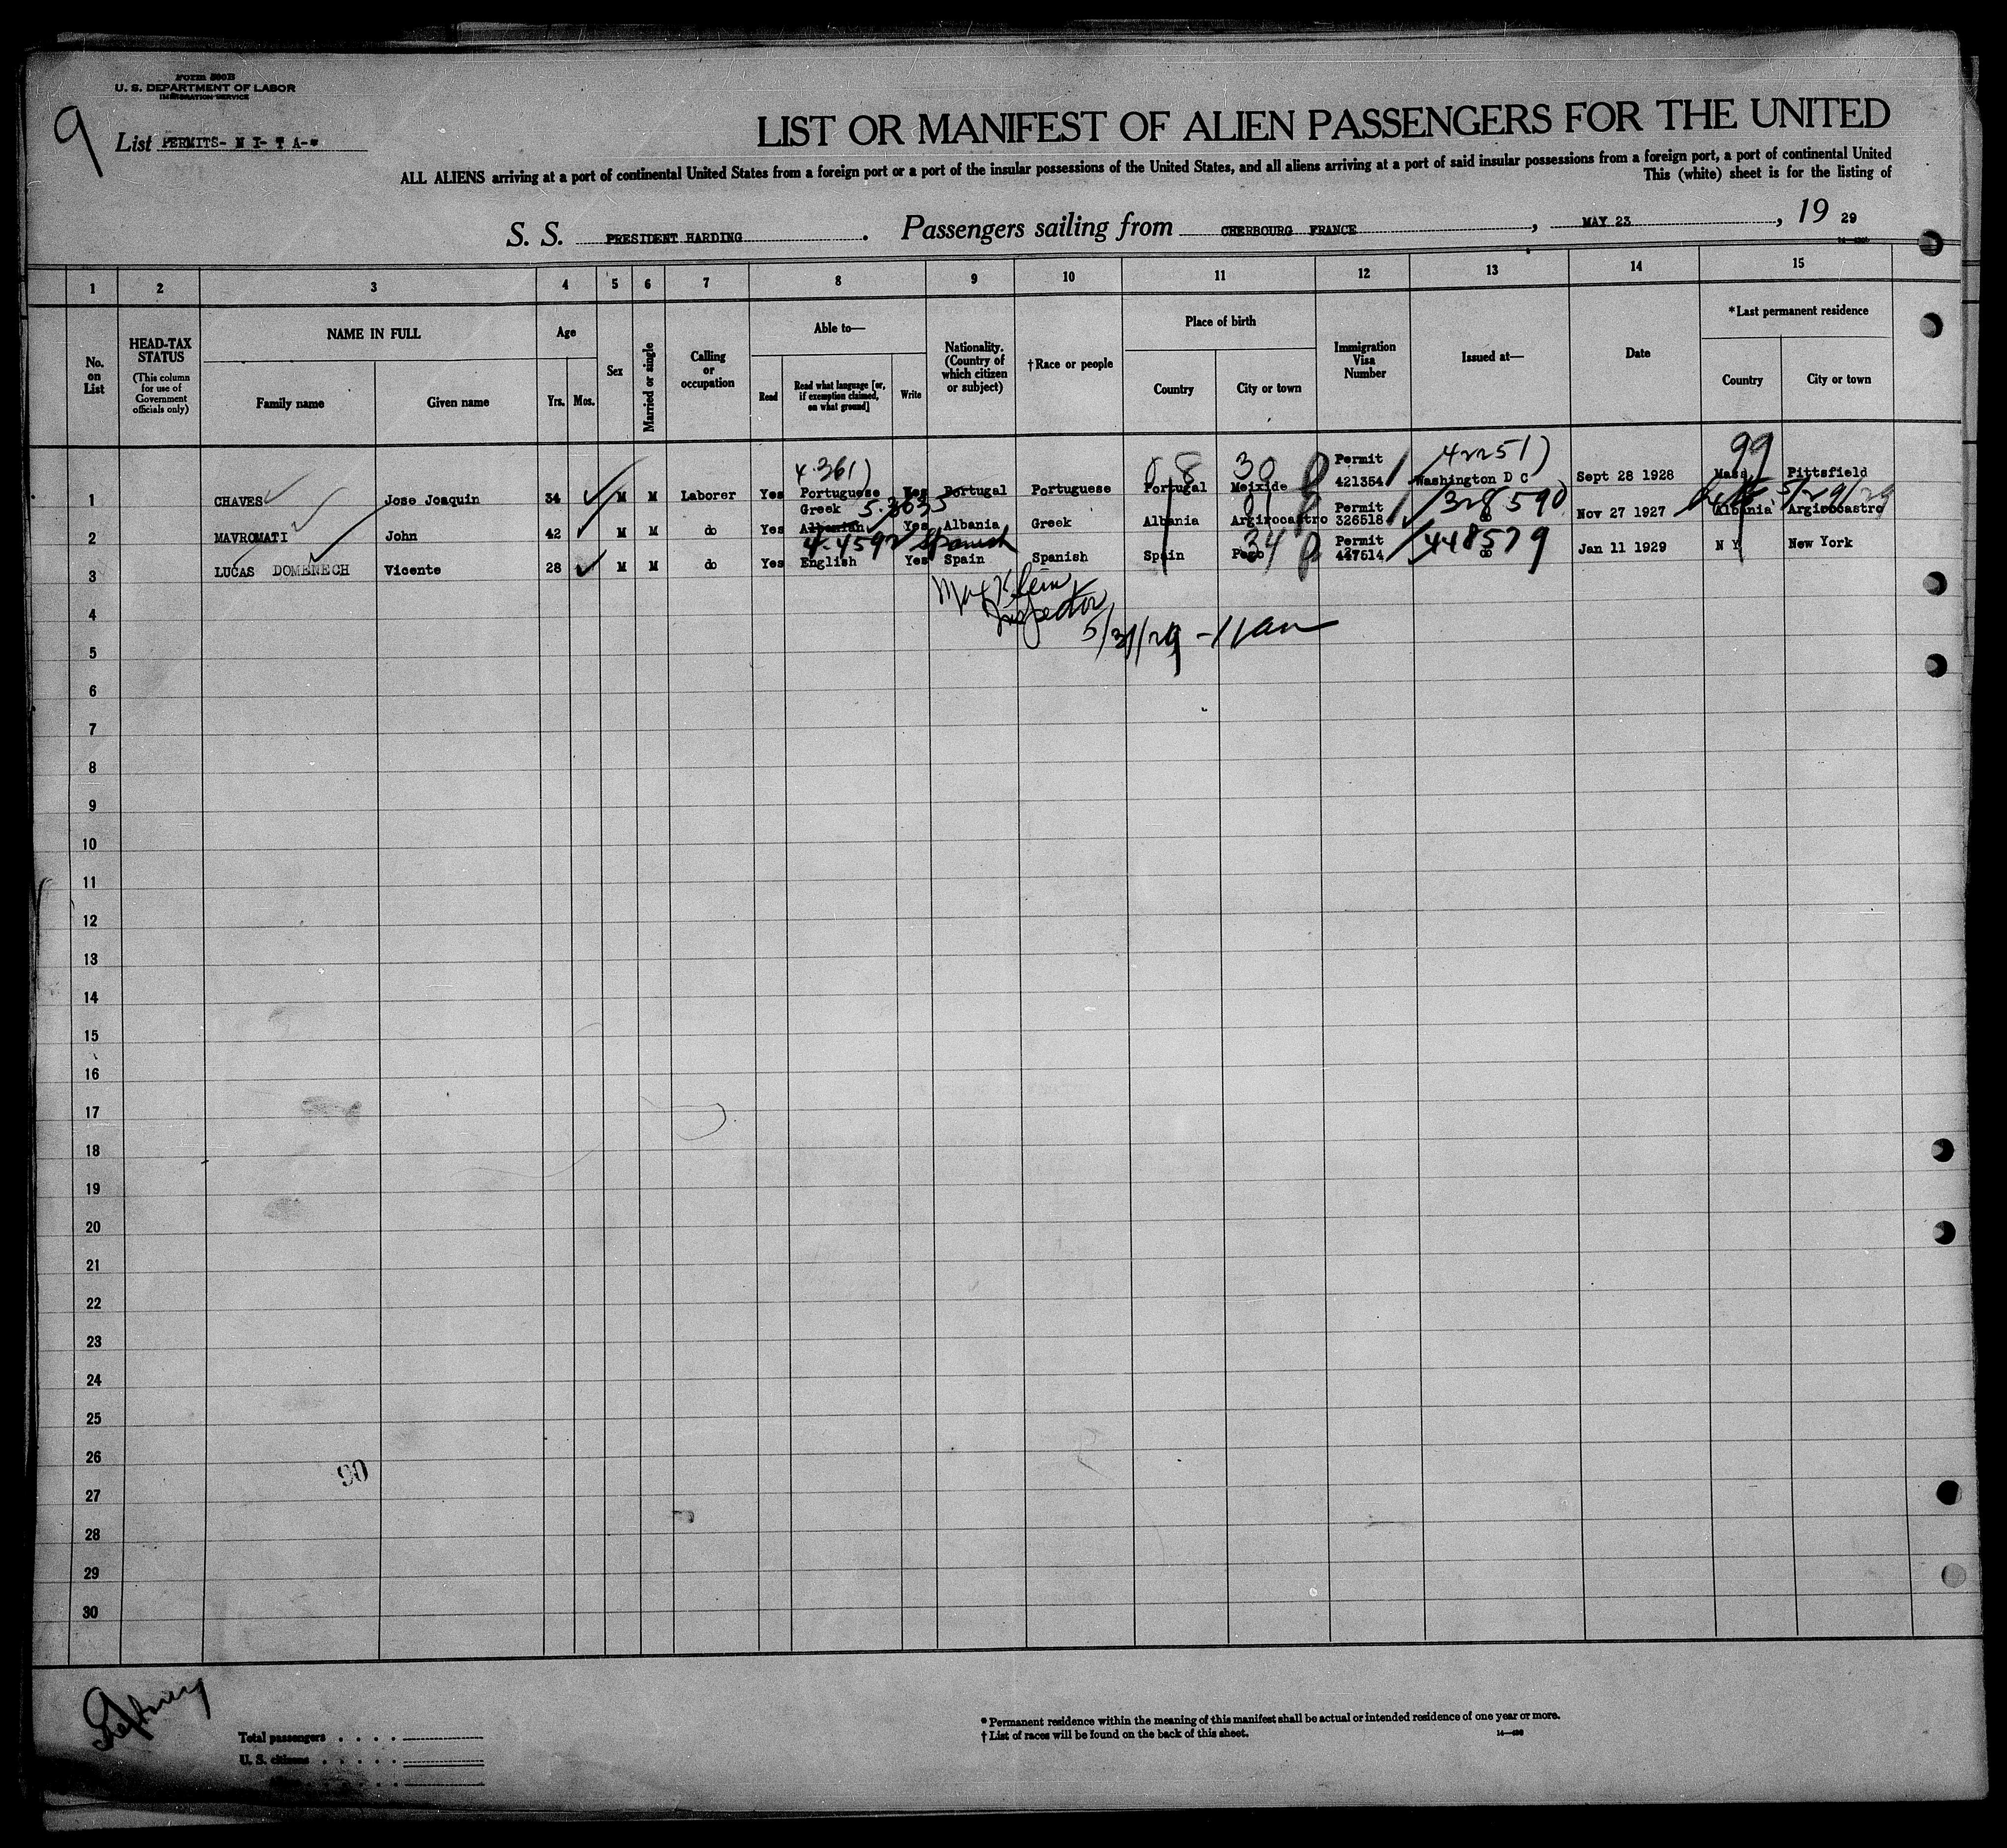 Form 500B
U. S. DEPARTMENT OF LABOR
IMMIGRATION SERVICE
9
List PERMITS- N I- T A-*
LIST OR MANIFEST OF ALIEN PASSENGERS FOR THE UNITED
ALL ALIENS arriving at a port of continental United States from a foreign port or a port of the insular possessions of the United States, and all aliens arriving at a port of said insular possessions from a foreign port, a port of continental United
This (white) sheet is for the listing of
S. S. PRESIDENT HARDING . Passengers sailing from CHERBOURG FRANCE , MAY 23 , 19 29
1 2 3 4 5 6 7 8 9 10 11 12 13 14 15
No. on List
HEAD-TAX STATUS (This column for use of Government officials only)
NAME IN FULL
Family name Given name
Age
Yrs. Mos.
Sex
Married or single
Calling or occupation
Able to—
Read Read what language [or, if exemption claimed, on what ground] Write
Nationality. (Country of which citizen or subject)
†Race or people
Place of birth
Country City or town
Immigration Visa Number
Issued at—
Date
*Last permanent residence
Country City or town
4-361) 8 30 Permit 42251) 99
1 CHAVES Jose Joaquin 34 M M Laborer Yes Portuguese Yes Portugal Portuguese Portugal Meixide 421354 Washington D C Sept 28 1928 Mass. Pittsfield
Greek 5-3635 Permit 328590 5/29/29
2 MAVROMATI John 42 M M do Yes Albanian Yes Albania Greek Albania Argirocastro 326518 do Nov 27 1927 Albania Argirocastro
4-4592 Spanish 34 Permit 448579
3 LUCAS DOMENECH Vicente 28 M M do Yes English Yes Spain Spanish Spain Pego 427514 do Jan 11 1929 N Y New York
Max Klein
Inspector
5/31/29 - 11 am
4
5
6
7
8
9
10
11
12
13
14
15
16
17
18
19
20
21
22
23
24
25
26
90
27
28
29
30
Total passengers
U. S. citizens
* Permanent residence within the meaning of this manifest shall be actual or intended residence of one year or more.
† List of races will be found on the back of this sheet.